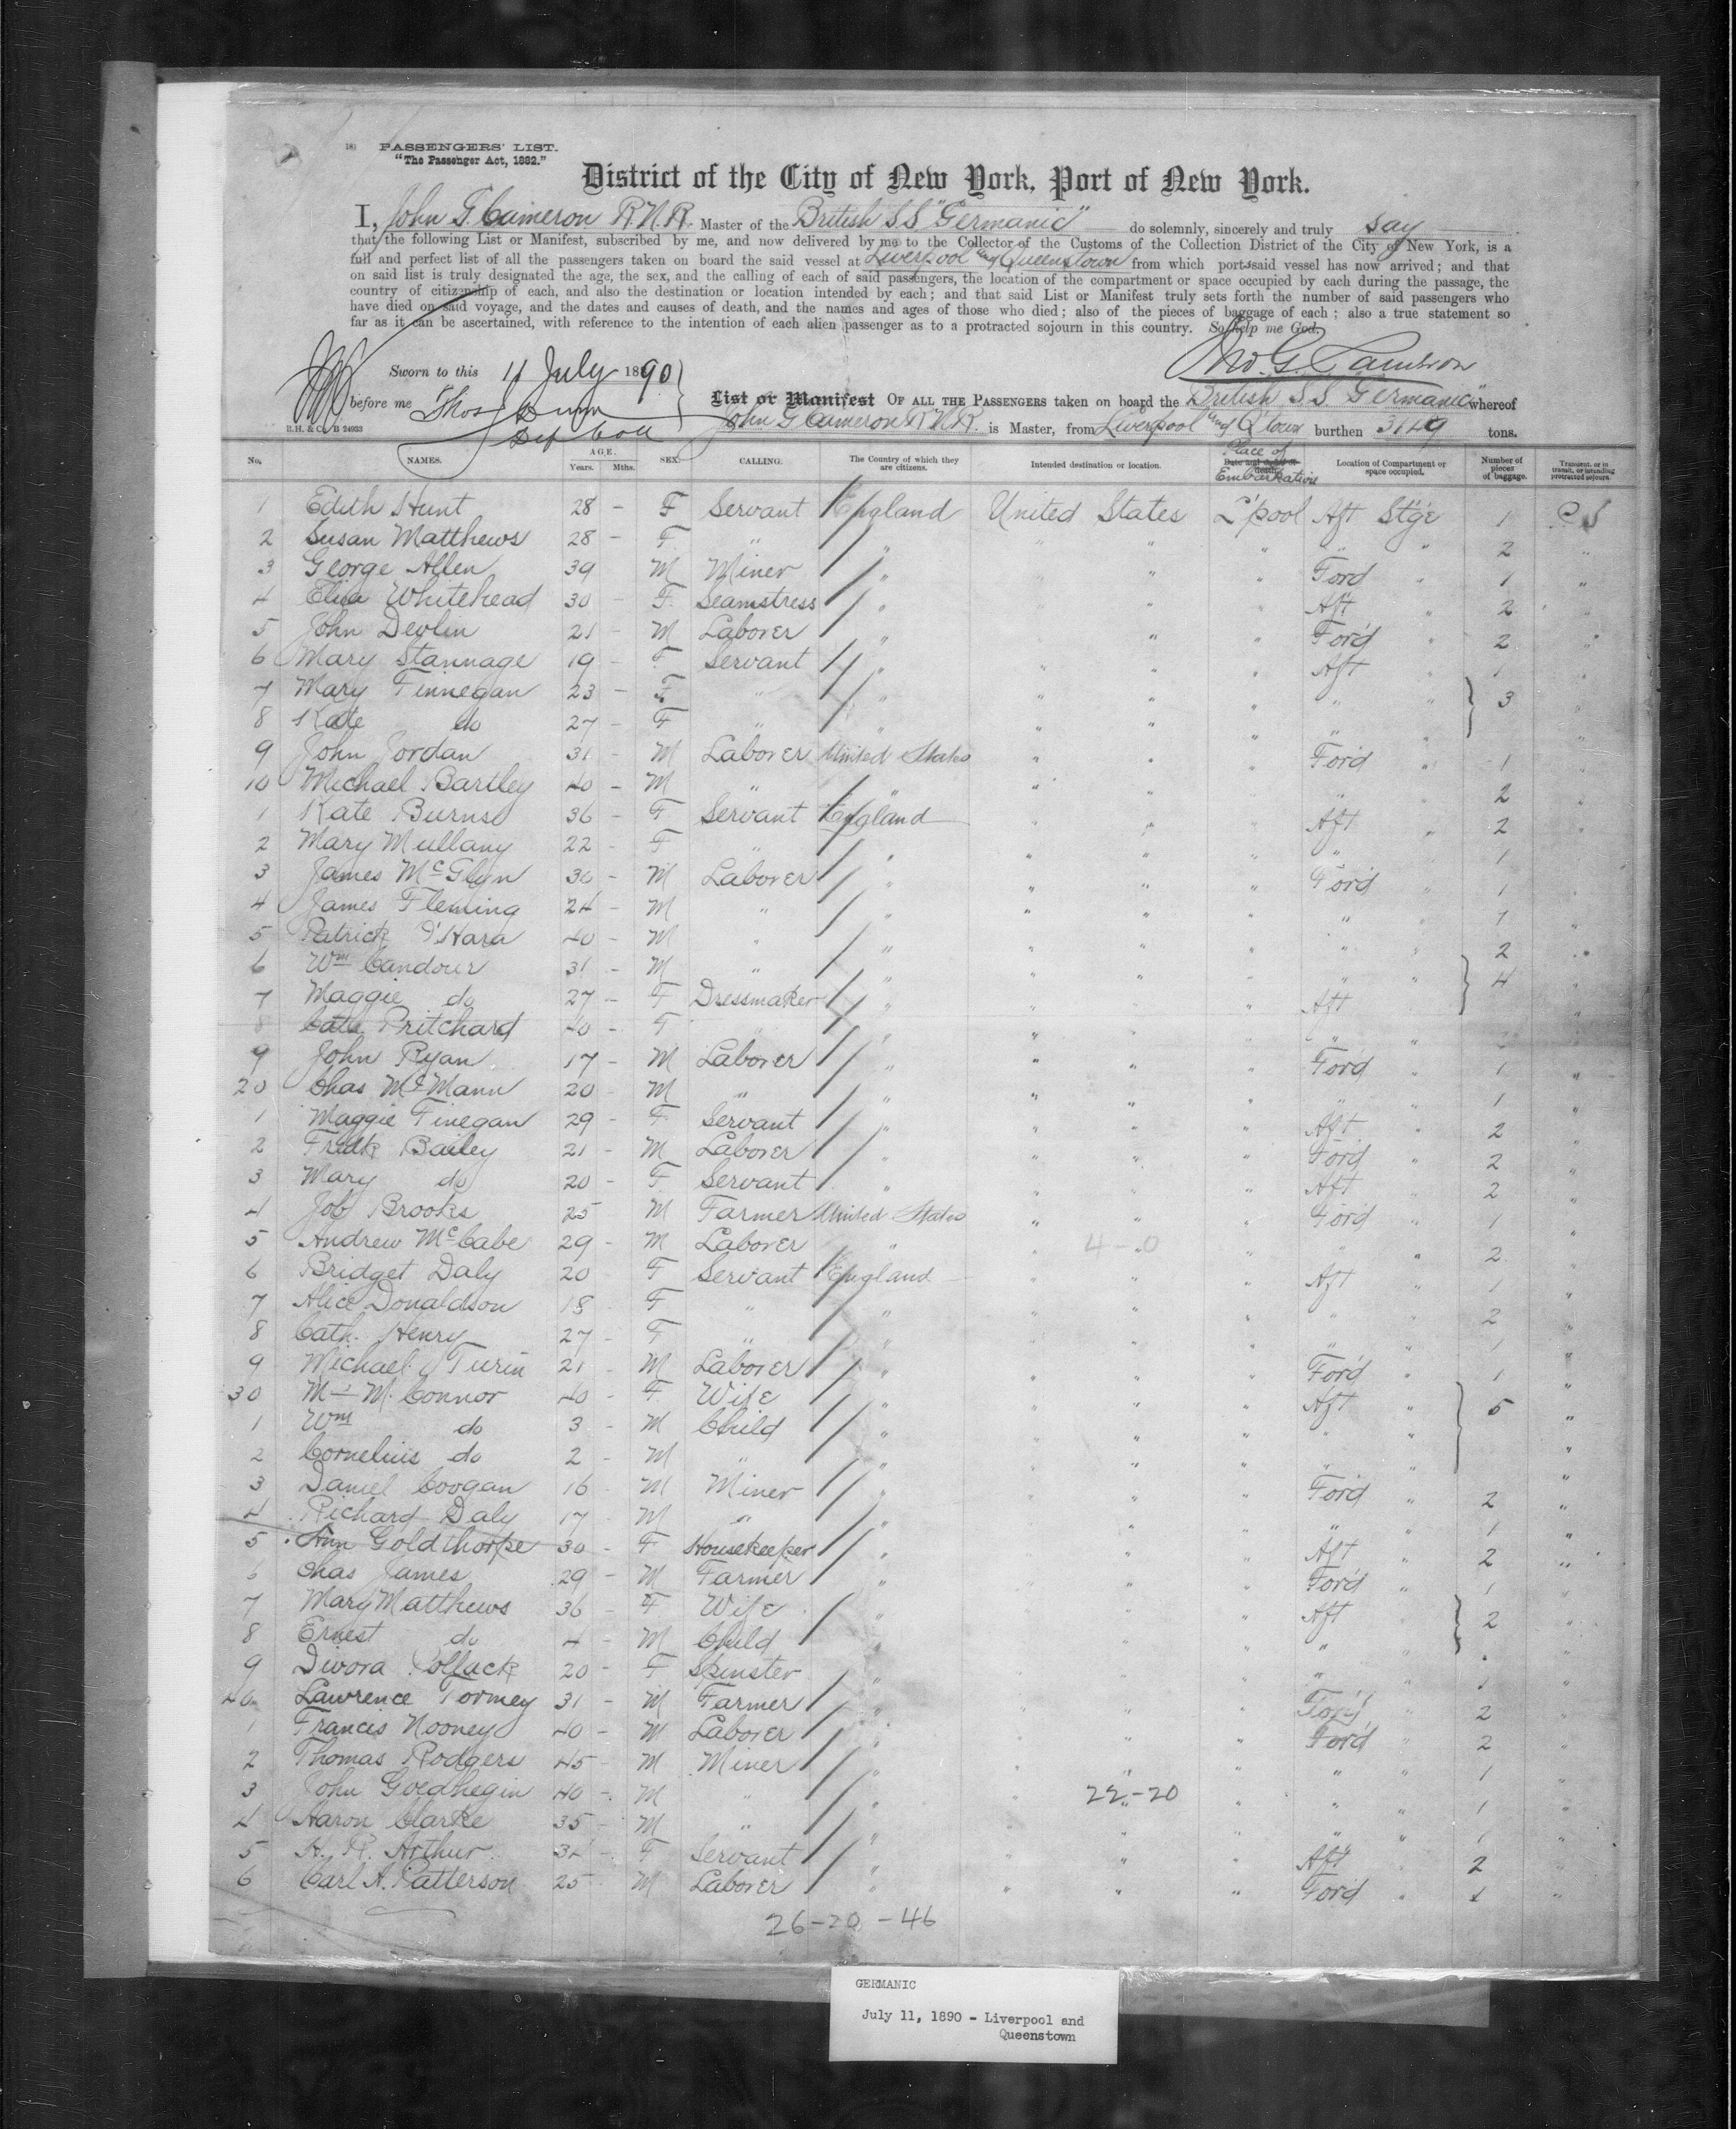 181 PASSENGERS' LIST.
"The Passenger Act, 1882."
District of the City of New York, Port of New York.
I, John G. Cameron R.N.R. Master of the British SS "Germanic" do solemnly, sincerely and truly say
that the following List or Manifest, subscribed by me, and now delivered by me to the Collector of the Customs of the Collection District of the City of New York, is a
full and perfect list of all the passengers taken on board the said vessel at Liverpool and Queenstown from which ports said vessel has now arrived; and that
on said list is truly designated the age, the sex, and the calling of each of said passengers, the location of the compartment or space occupied by each during the passage, the
country of citizenship of each, and also the destination or location intended by each; and that said List or Manifest truly sets forth the number of said passengers who
have died on said voyage, and the dates and causes of death, and the names and ages of those who died; also of the pieces of baggage of each; also a true statement so
far as it can be ascertained, with reference to the intention of each alien passenger as to a protracted sojourn in this country. So help me God.
Jno. G. Cameron
Sworn to this 11 July 1890
before me Thos Dunn
Dep Coll
B.H. & Co. B 24933
List or Manifest OF ALL THE PASSENGERS taken on board the British S.S. Germanic" whereof
John G Cameron R.N.R. is Master, from Liverpool and Q'town burthen 3149 tons.
No. NAMES. AGE. Years. Mths. SEX. CALLING. The Country of which they are citizens. Intended destination or location. Place of Embarkation Location of Compartment or space occupied. Number of pieces of baggage. Transient, or in transit, or intending protracted sojourn.
1 Edith Hunt 28 - F Servant England United States L'pool Aft Stge 1 P S
2 Susan Matthews 28 - F " " " " " " " 2 "
3 George Allen 39 M Miner " " " " Ford " 1 "
4 Eliza Whitehead 30 - F Seamstress " " " " Aft " 2 "
5 John Devlin 21 - M Laborer " " " " Ford " 2 "
6 Mary Stannage 19 - F Servant " " " " Aft " 1 "
7 Mary Finnegan 23 - F " " " " " " " 3 "
8 Kate do 27 - F " " " " " " " "
9 John Jordan 31 - M Laborer United States " " " Ford " 1 "
10 Michael Bartley 40 - M " " " " " " " 2 "
1 Kate Burns 36 - F Servant England " " " Aft " 2 "
2 Mary Mullany 22 - F " " " " " " " 1 "
3 James McGlyn 30 - M Laborer " " " " Ford " 1 "
4 James Fleming 24 - M " " " " " " " 1 "
5 Patrick O'Hara 40 - M " " " " " " " 2 "
6 Wm Candour 31 - M " " " " " " " 4 "
7 Maggie do 27 - F Dressmaker " " " " Aft "
8 Cath Pritchard 40 - F " " " " " " "
9 John Ryan 17 - M Laborer " " " " Ford " 1 "
20 Chas McMann 20 - M " " " " " " " 1 "
1 Maggie Finegan 29 - F Servant " " " " Aft " 2 "
2 Fredk Bailey 21 - M Laborer " " " " Ford " 2 "
3 Mary do 20 - F Servant " " " " Aft " 2 "
4 Job Brooks 25 M Farmer United States " " " Ford " 1 "
5 Andrew McCabe 29 - M Laborer " " 4-0 " " " 2 "
6 Bridget Daly 20 F Servant England " " " Aft " 1 "
7 Alice Donaldson 18 F " " " " " " " 2 "
8 Cath. Henry 27 - F " " " " " " " 1 "
9 Michael Turin 21 M Laborer " " " " Ford " 1 "
30 M M. Connor 40 - F Wife " " " " Aft " 5 "
1 Wm do 3 - M Child " " " " " " "
2 Cornelius do 2 - M " " " " " " " "
3 Daniel Coogan 16 M Miner " " " " Ford " 2 "
4 Richard Daly 17 - M " " " " " " " 1 "
5 Ann Goldthorpe 30 - F Housekeeper " " " " Aft " 2 "
6 Chas James 29 - M Farmer " " " " Ford " 1 "
7 Mary Matthews 36 - F Wife " " " " Aft " 2 "
8 Ernest do 4 - M Child " " " " " " "
9 Divora Pollack 20 - F Spinster " " " " " " 1 "
40 Lawrence Tormey 31 - M Farmer " " " " Ford " 2 "
1 Francis Nooney 40 - M Laborer " " " " Ford " 2 "
2 Thomas Rodgers 45 - M Miner " " " " " " 1 "
3 John Goedhegin 40 - M " " " 22-20 " " " 1 "
4 Aaron Clarke 35 - M " " " " " " " 1 "
5 H. R. Arthur 32 - F Servant " " " " Aft " 2 "
6 Carl A. Patterson 25 M Laborer " " " " Ford " 1 "
26-20-46
GERMANIC
July 11, 1890 - Liverpool and
Queenstown